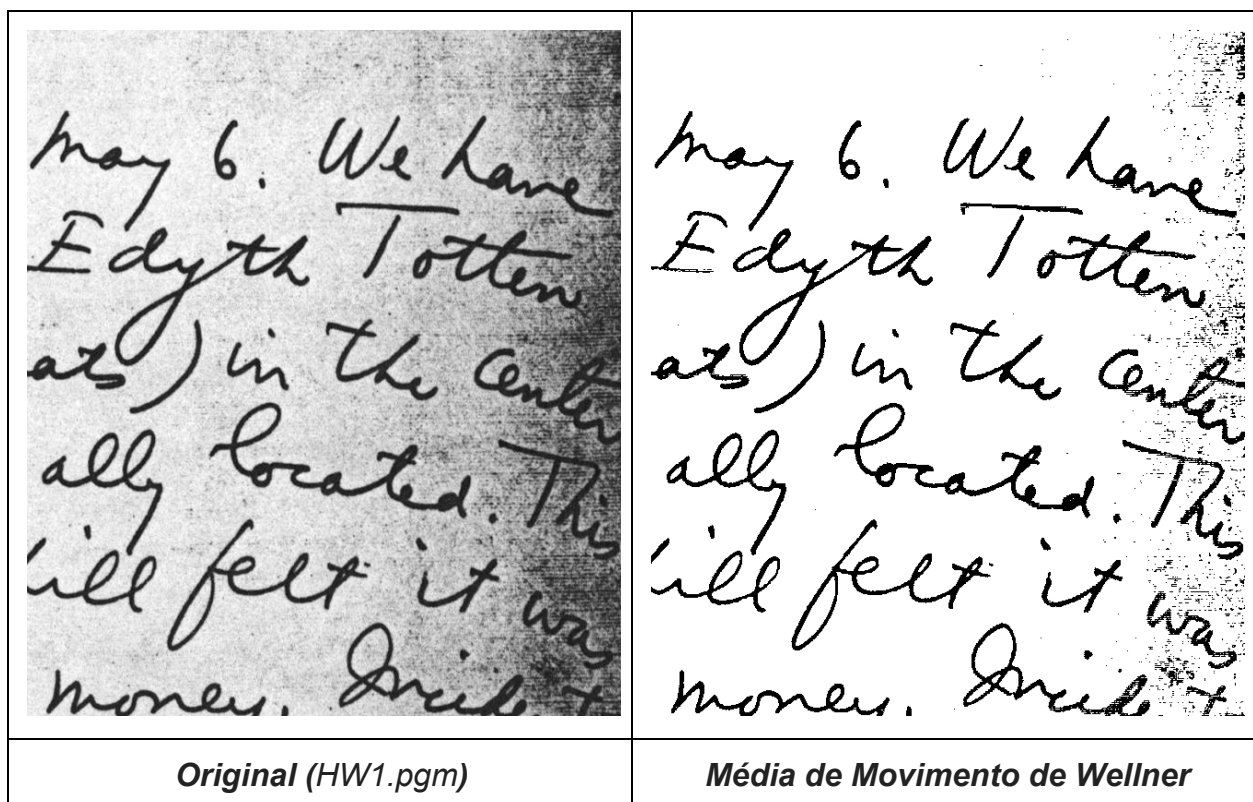 may 6. We have
Edyth Totten
ats) in the center
ally located. This
ill felt it was
money. Incide t
may 6. We have
Edyth Totten
ats) in the center
ally located. This
ill felt it was
money. Incide t
Original (HW1.pgm)
Média de Movimento de Wellner